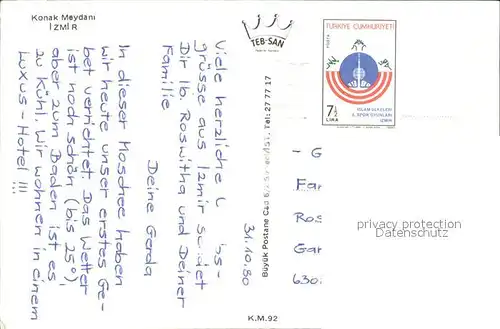 Konak Meydanı
İZMİR
TEB-SAN
TÜRKİYE CUMHURİYETİ
POSTA
7½
LİRA
İSLAM ÜLKELERİ
I. SPOR OYUNLARI
İZMİR
31.10.80
Viele herzliche
grüsse aus Izmir sendet
Dir lb. Roswitha und Deiner
Familie
Deine Gerda
In dieser Moschee haben
wir heute unser erstes Ge-
bet verrichtet. Das Wetter
ist noch schön (bis 25°),
aber zum Baden ist es
zu kühl. Wir wohnen in einem
Luxus-Hotel!!!
Büyük Postane Cad. Tel: 27 77 17
- G
Fam
Ros
Gar
630
privacy protection
www.oldthing.com
K.M.92